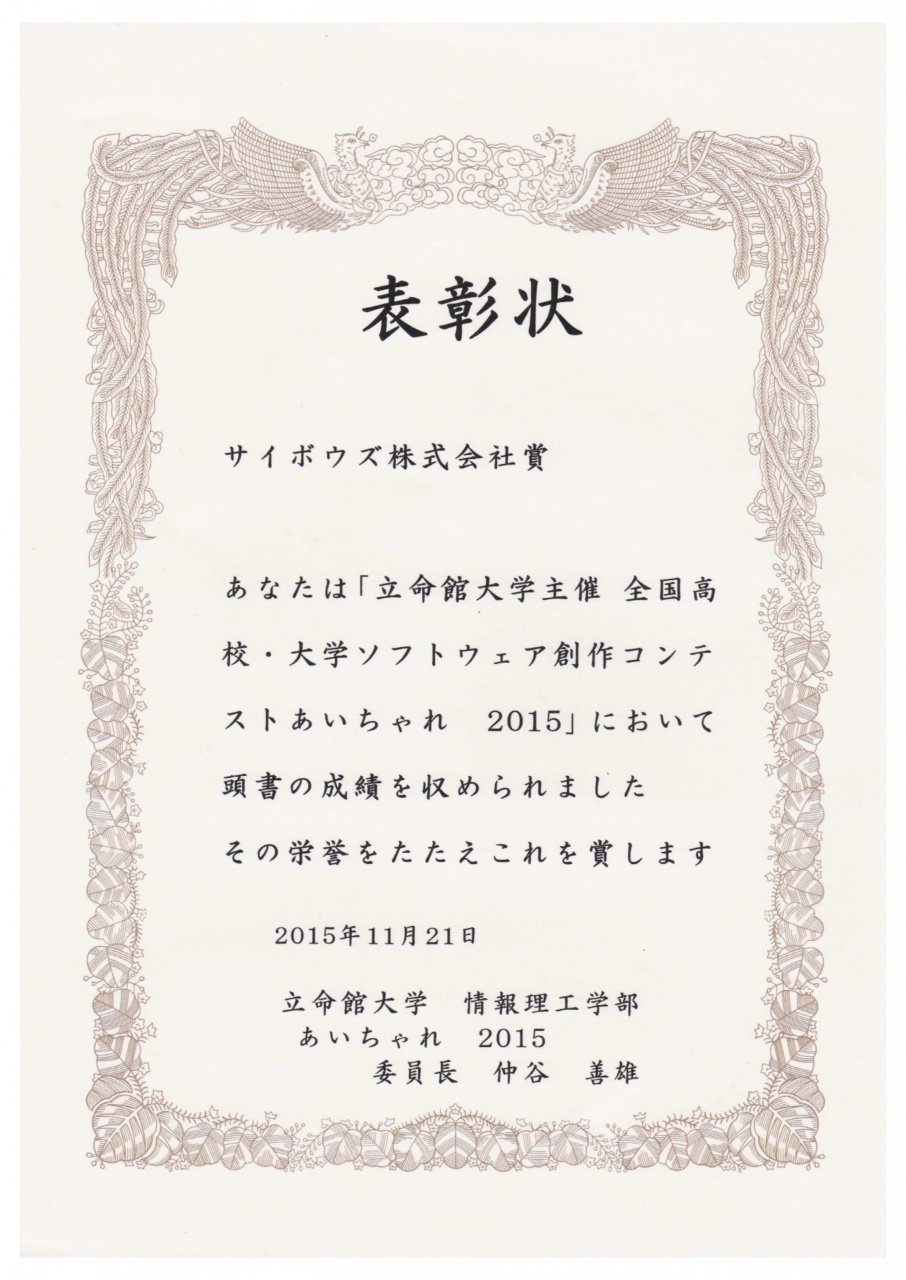 表彰状
サイボウズ株式会社賞
あなたは「立命館大学主催 全国高
校・大学ソフトウェア創作コンテ
ストあいちゃれ　2015」において
頭書の成績を収められました
その栄誉をたたえこれを賞します
2015年11月21日
立命館大学　情報理工学部
あいちゃれ　2015
委員長　仲谷　善雄